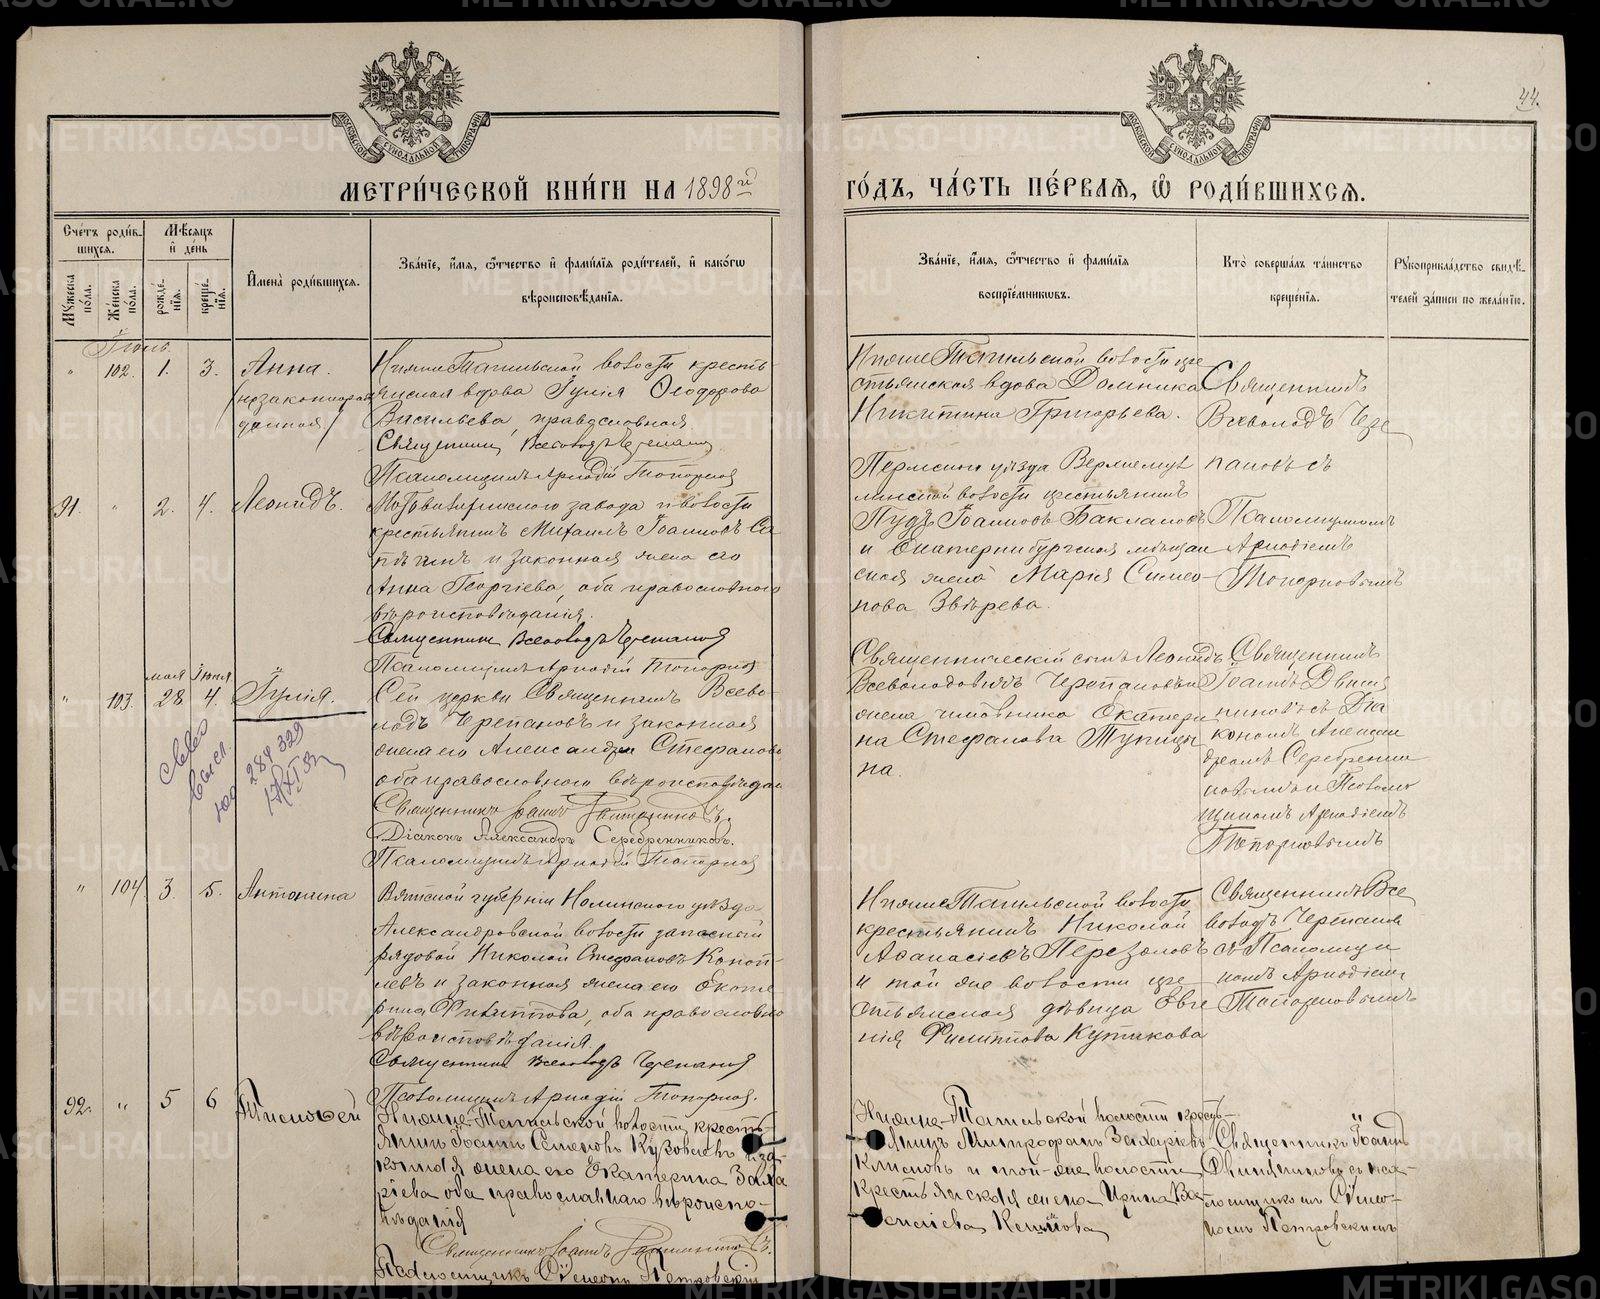 44.
МОСКОВСКОЙ СѴНОДАЛЬНОЙ ТИПОГРАФІИ
МОСКОВСКОЙ СѴНОДАЛЬНОЙ ТИПОГРАФІИ
МЕТРИ́ЧЕСКОЙ КНИ́ГИ НА 1898й
ГО́ДЪ, ЧА́СТЬ ПЕ́РВАЯ, Ѽ РОДИ́ВШИХСЯ.
Сче́тъ роди́в-
шихся.
Мѣ́сяцъ
и҆ де́нь
Мꙋ́жеска
по́ла.
Же́нска
по́ла.
рожде́-
нїя.
креще́-
нїя.
И҆мена̀ роди́вшихся.
Зва́нїе, и҆́мя, ѻ҆́тчество и҆ фами́лїя роди́телей, и҆ како́гѡ
вѣроисповѣ́данїя.
Зва́нїе, и҆́мя, ѻ҆́тчество и҆ фами́лїя
воспрїе́мниковъ.
Кто̀ соверша́лъ та́инство
креще́нїя.
Рꙋкоприкла́дство свидѣ́-
телей за́писи по жела́нїю.
Іюнь.
" 102. 1. 3. Анна.
(незаконорож
денная)
Нижне Тагильской волости кресть
янская вдова Іулія Ѳеодорова
Васильева, православная
Священникъ Всеволодъ Черепановъ
Псаломщикъ Аркадій Топорковъ
Нижне Тагильской волости кре
стьянская вдова Домника
Никитина Григорьева.
Священникъ
Всеволодъ Чере
пановъ съ
Псаломщикомъ
Аркадіемъ
Топорковымъ
91. " 2. 4. Леонидъ.
завода и волости
крестьянинъ Михаилъ Іоанновъ Са
и законная жена его
Анна Георгіева, оба православнаго
вѣроисповѣданія.
Священникъ Всеволодъ Черепановъ
Псаломщикъ Аркадій Топорковъ
Пермскаго уѣзда Верхнему
линской волости крестьянинъ
Пудъ Іоанновъ Баклановъ
и Екатеринбургская мѣщан
ская жена Марія Симео-
нова Звѣрева.
мая Іюня
" 103. 28 4. Іулія.
Сей церкви Священникъ Всево
лодъ Черепановъ и законная
жена его Александра Стефанова
оба православнаго вѣроисповѣдан
Священникъ Іоаннъ
Діаконъ Александръ Серебренниковъ.
Псаломщикъ Аркадій Топорковъ
Священническій сынъ Леонидъ
Всеволодовичъ Черепановъ и
жена чиновника Екатери
на Стефанова Тупицы
на.
Священникъ
Іоаннъ Двиня
ниновъ съ Діа
кономъ Алексан
дромъ Серебренни
ковымъ и Псалом
щикомъ Аркадіемъ
Топорковымъ
284 329
" 104. 3. 5. Антонина
Вятской губерніи Нолинскаго уѣзда
Александровской волости запасный
рядовой Николай Стефановъ Коноп-
левъ и законная жена его Екате
рина Филиппова, оба православнаго
вѣроисповѣданія.
Священникъ Всеволодъ Черепановъ
Псаломщикъ Аркадій Топорковъ.
Нижне Тагильской волости
крестьянинъ Николай
Аѳанасіевъ Перезоловъ
и той же волости кре
стьянская дѣвица Евге
нія Филиппова Кутакова
Священникъ Все
володъ Черепановъ
съ Псаломщи
комъ Аркадіемъ
Топорковымъ
92. " 5 6 Тимоѳей
Нижне-Тагильской волости кресть-
янинъ Іоаннъ Семеновъ и за-
конная жена его Екатерина Заха
ріева оба православнаго вѣроиспо-
вѣданія
Священникъ Іоаннъ
Псаломщикъ Сѵмеонъ Петровскій
Нижне-Тагильской волости кресть-
янинъ Митрофанъ Захаріевъ
и той-же волости
крестьянская жена Ирина Ва
Священникъ Іоаннъ
Двиняниновъ съ пса-
ломщикомъ Сѵмео-
номъ Петровскимъ